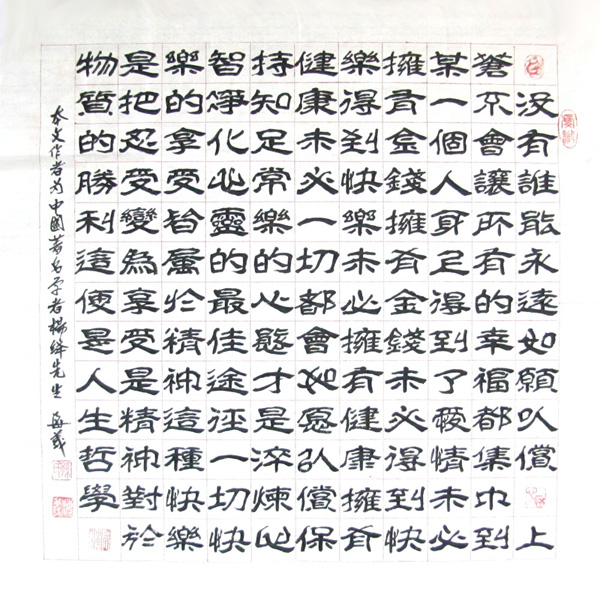 沒有誰能永遠如願以償上
蒼不會讓所有的幸福都集中到
某一個人身上得到了愛情未必
擁有金錢擁有金錢未必得到快
樂得到快樂未必擁有健康擁有
健康未必一切都會如愿以償保
持知足常樂的心態才是淬煉心
智淨化心靈的最佳途徑一切快
樂的拿受皆屬於精神這種快樂
是把忍受變為享受是精神對於
物質的勝利這便是人生哲學
本文作者为中國著名学者楊絳先生